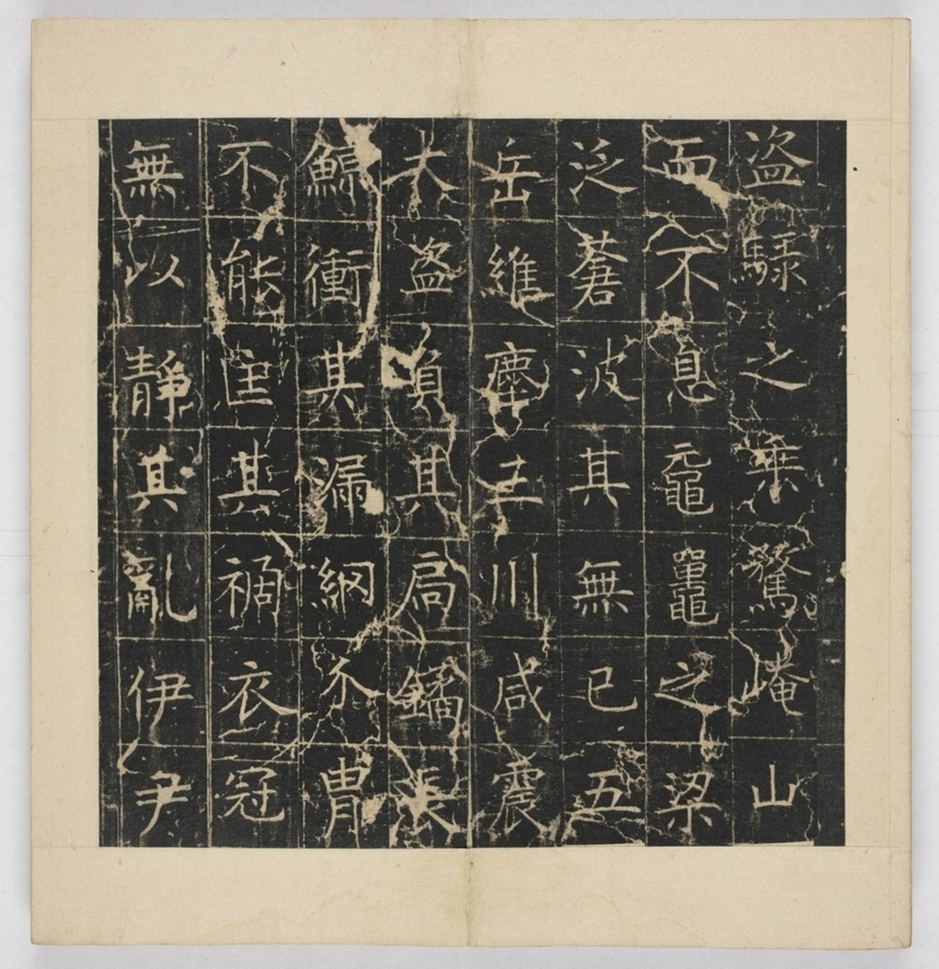 盜騄之乘驚崦山
而不息黿鼉之梁
泛蒼波其無已五
岳維塵三川咸震
大盜負其扃鐍長
鯨衝其漏網介胄
不能匡其禍衣冠
無以靜其亂伊尹